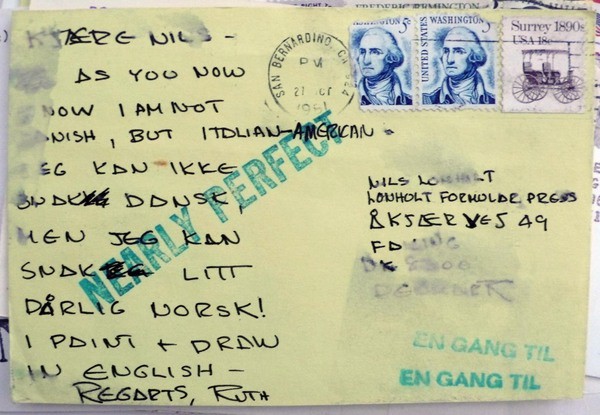 FREDERIC REMINGTON
KJÆRE NILS -
AS YOU NOW
NOW I AM NOT
NISH, BUT ITALIAN-AMERICAN.
EG KAN IKKE
SNAKK DANSK,
MEN JEG KAN
SNAKKE LITT
DÅRLIG NORSK!
I PAINT + DRAW
IN ENGLISH -
REGARDS, RUTH
NEARLY PERFECT
SAN BERNARDINO, CA
PM
27 OCT
1981
WASHINGTON 5c
UNITED STATES
WASHINGTON 5c
Surrey 1890s
USA 18c
NILS LOMHOLT
LOMHOLT FORMULAR PRESS
ÅKJÆRVEJ 49
EN GANG TIL
EN GANG TIL